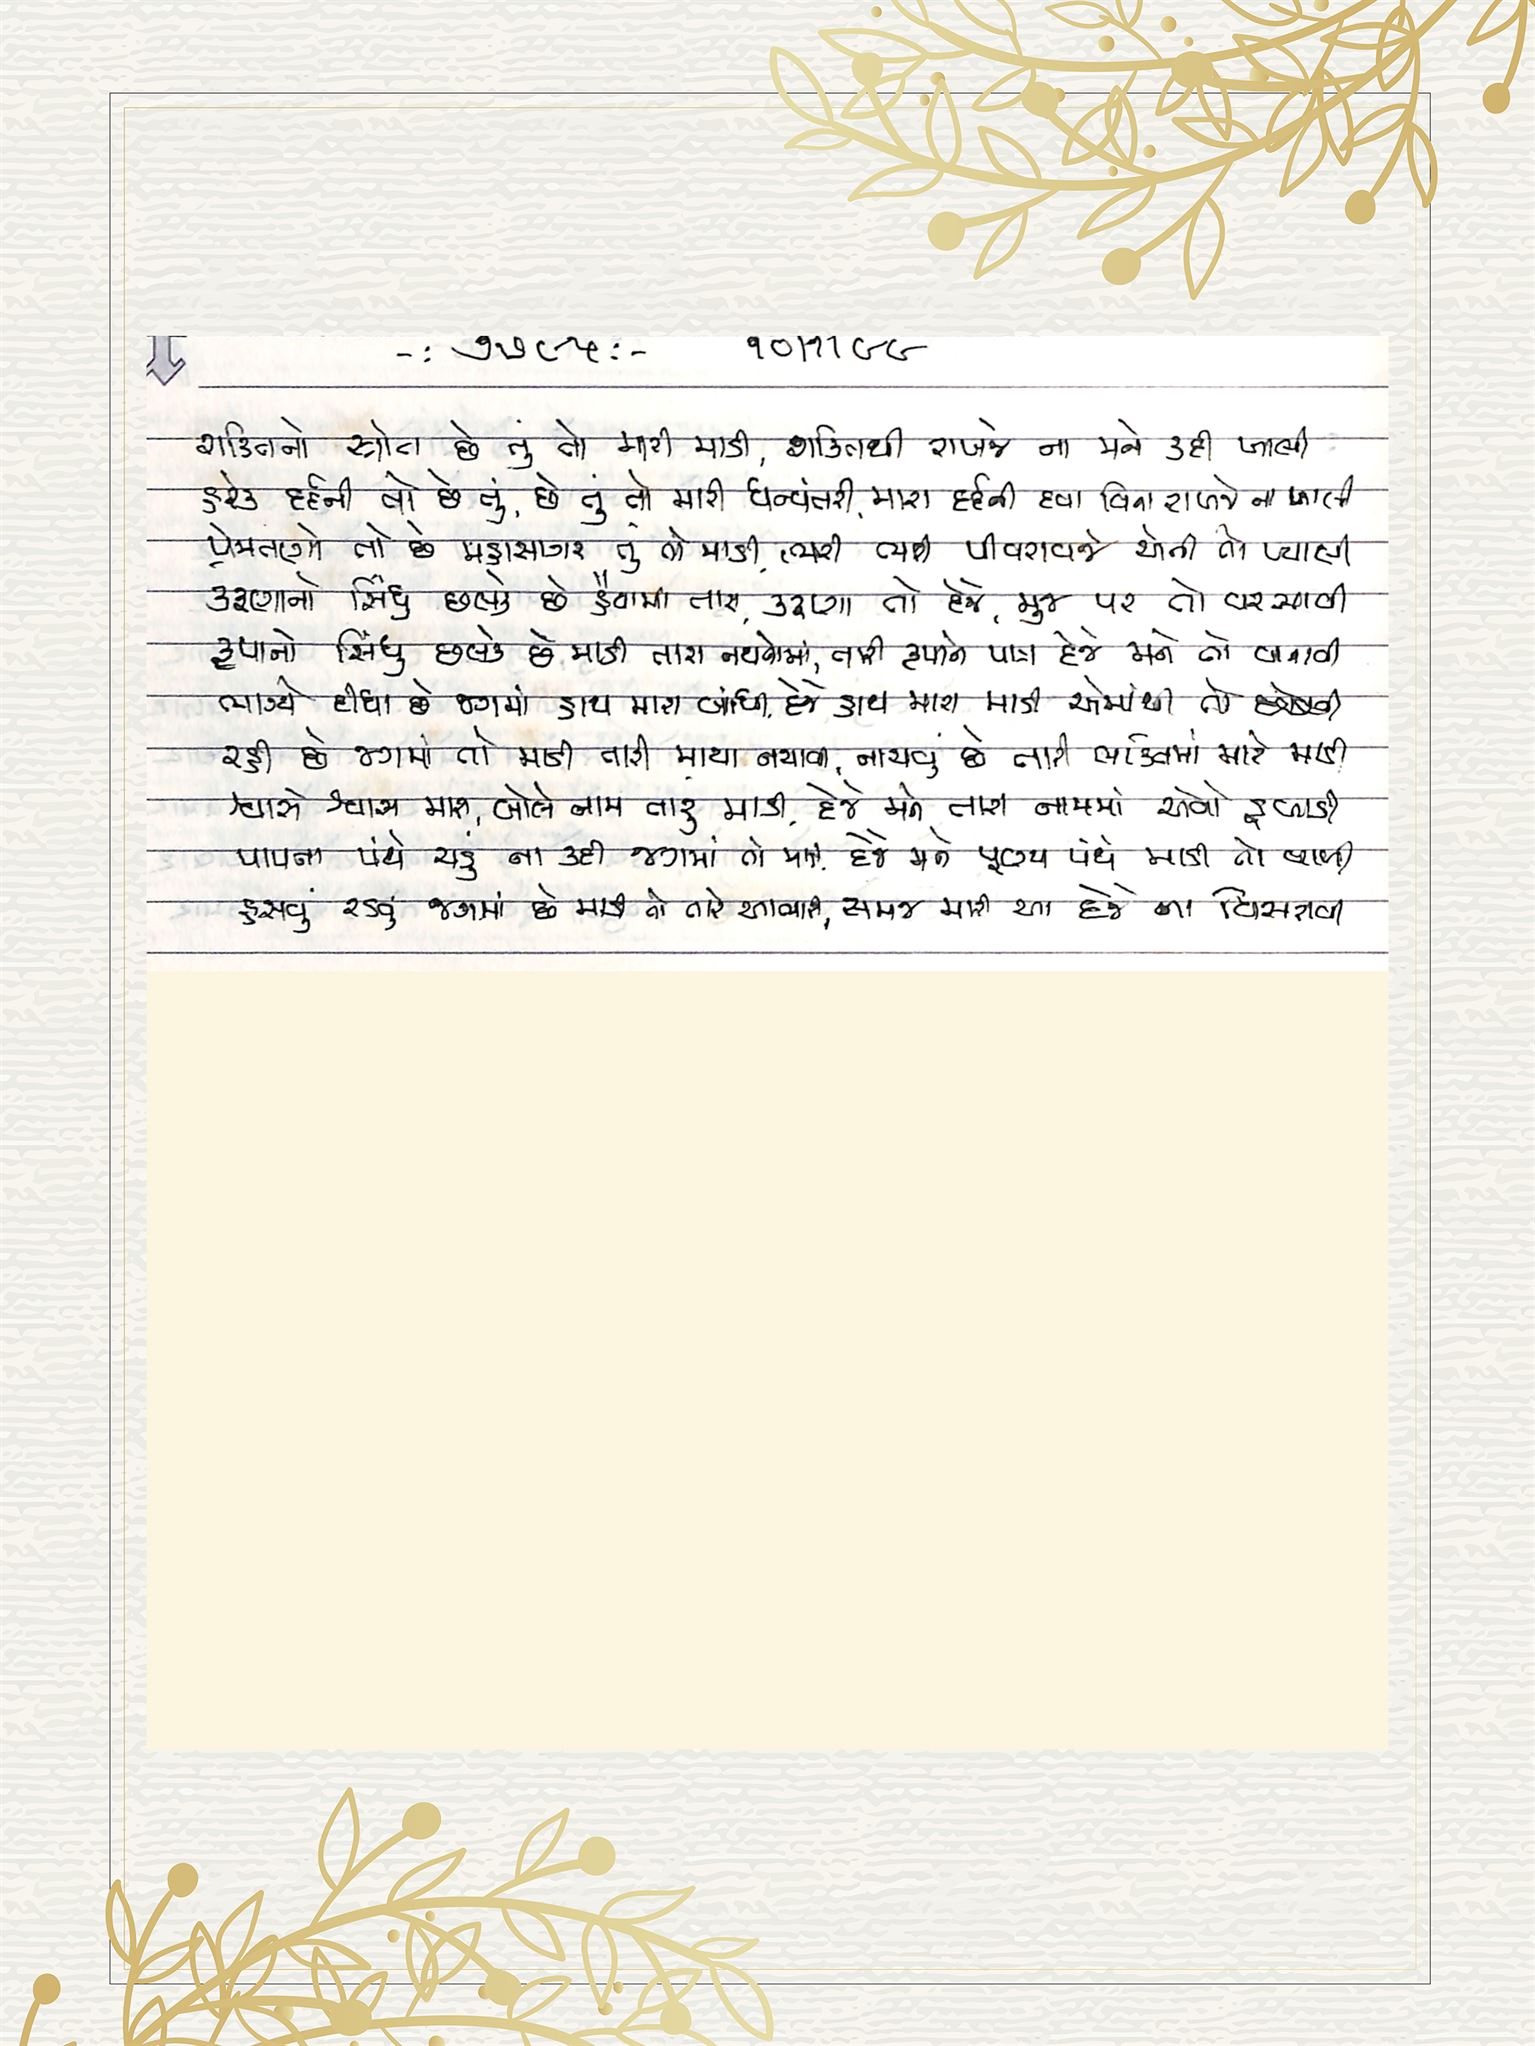 -: ૭૭૯૫ :- ૧૦|૧|૯૯
શક્તિનો સ્ત્રોત છે તું તો મારી માડી, શક્તિથી રાખજે ના મને કદી ખાલી
હરેક દર્દની તો છે તું, છે તું તો મારી ધન્વંતરી, મારા દર્દની દવા વિના રાખજે ના ખાલી
પ્રેમતણો તો છે મહાસાગર તું તો માડી, ભરી ભરી પીવરાવજે એની તો પ્યાલી
કરૂણાનો સિંધુ છલકે છે હૈયામાં તારા, કરૂણા તો દેજે, મુજ પર તો વરસાવી
કૃપાનો સિંધુ છલકે છે માડી તારા નયનોમાં, તારી કૃપાને પાત્ર દેજે મને તો બનાવી
ભાગ્યે દીધા છે જગમાં હાથ મારા બાંધી, દેજે હાથ મારા માડી એમાંથી તો છોડાવી
રહી છે જગમાં તો માડી તારી માયા નચાવી, નાચવું છે તારી ભક્તિમાં મારે માડી
શ્વાસે શ્વાસ મારા, બોલે નામ તારું માડી, દેજે મને તારા નામમાં એવો ડુબાડી
પાપના પંથે ચડું ના કદી જગમાં તો માડી, દેજે મને પૂણ્ય પંથે માડી તો વાળી
હસવું રડવું જગમાં છે માડી તો તારે આધારે, સમજ મારી આ દેજે ના વિસરાવી